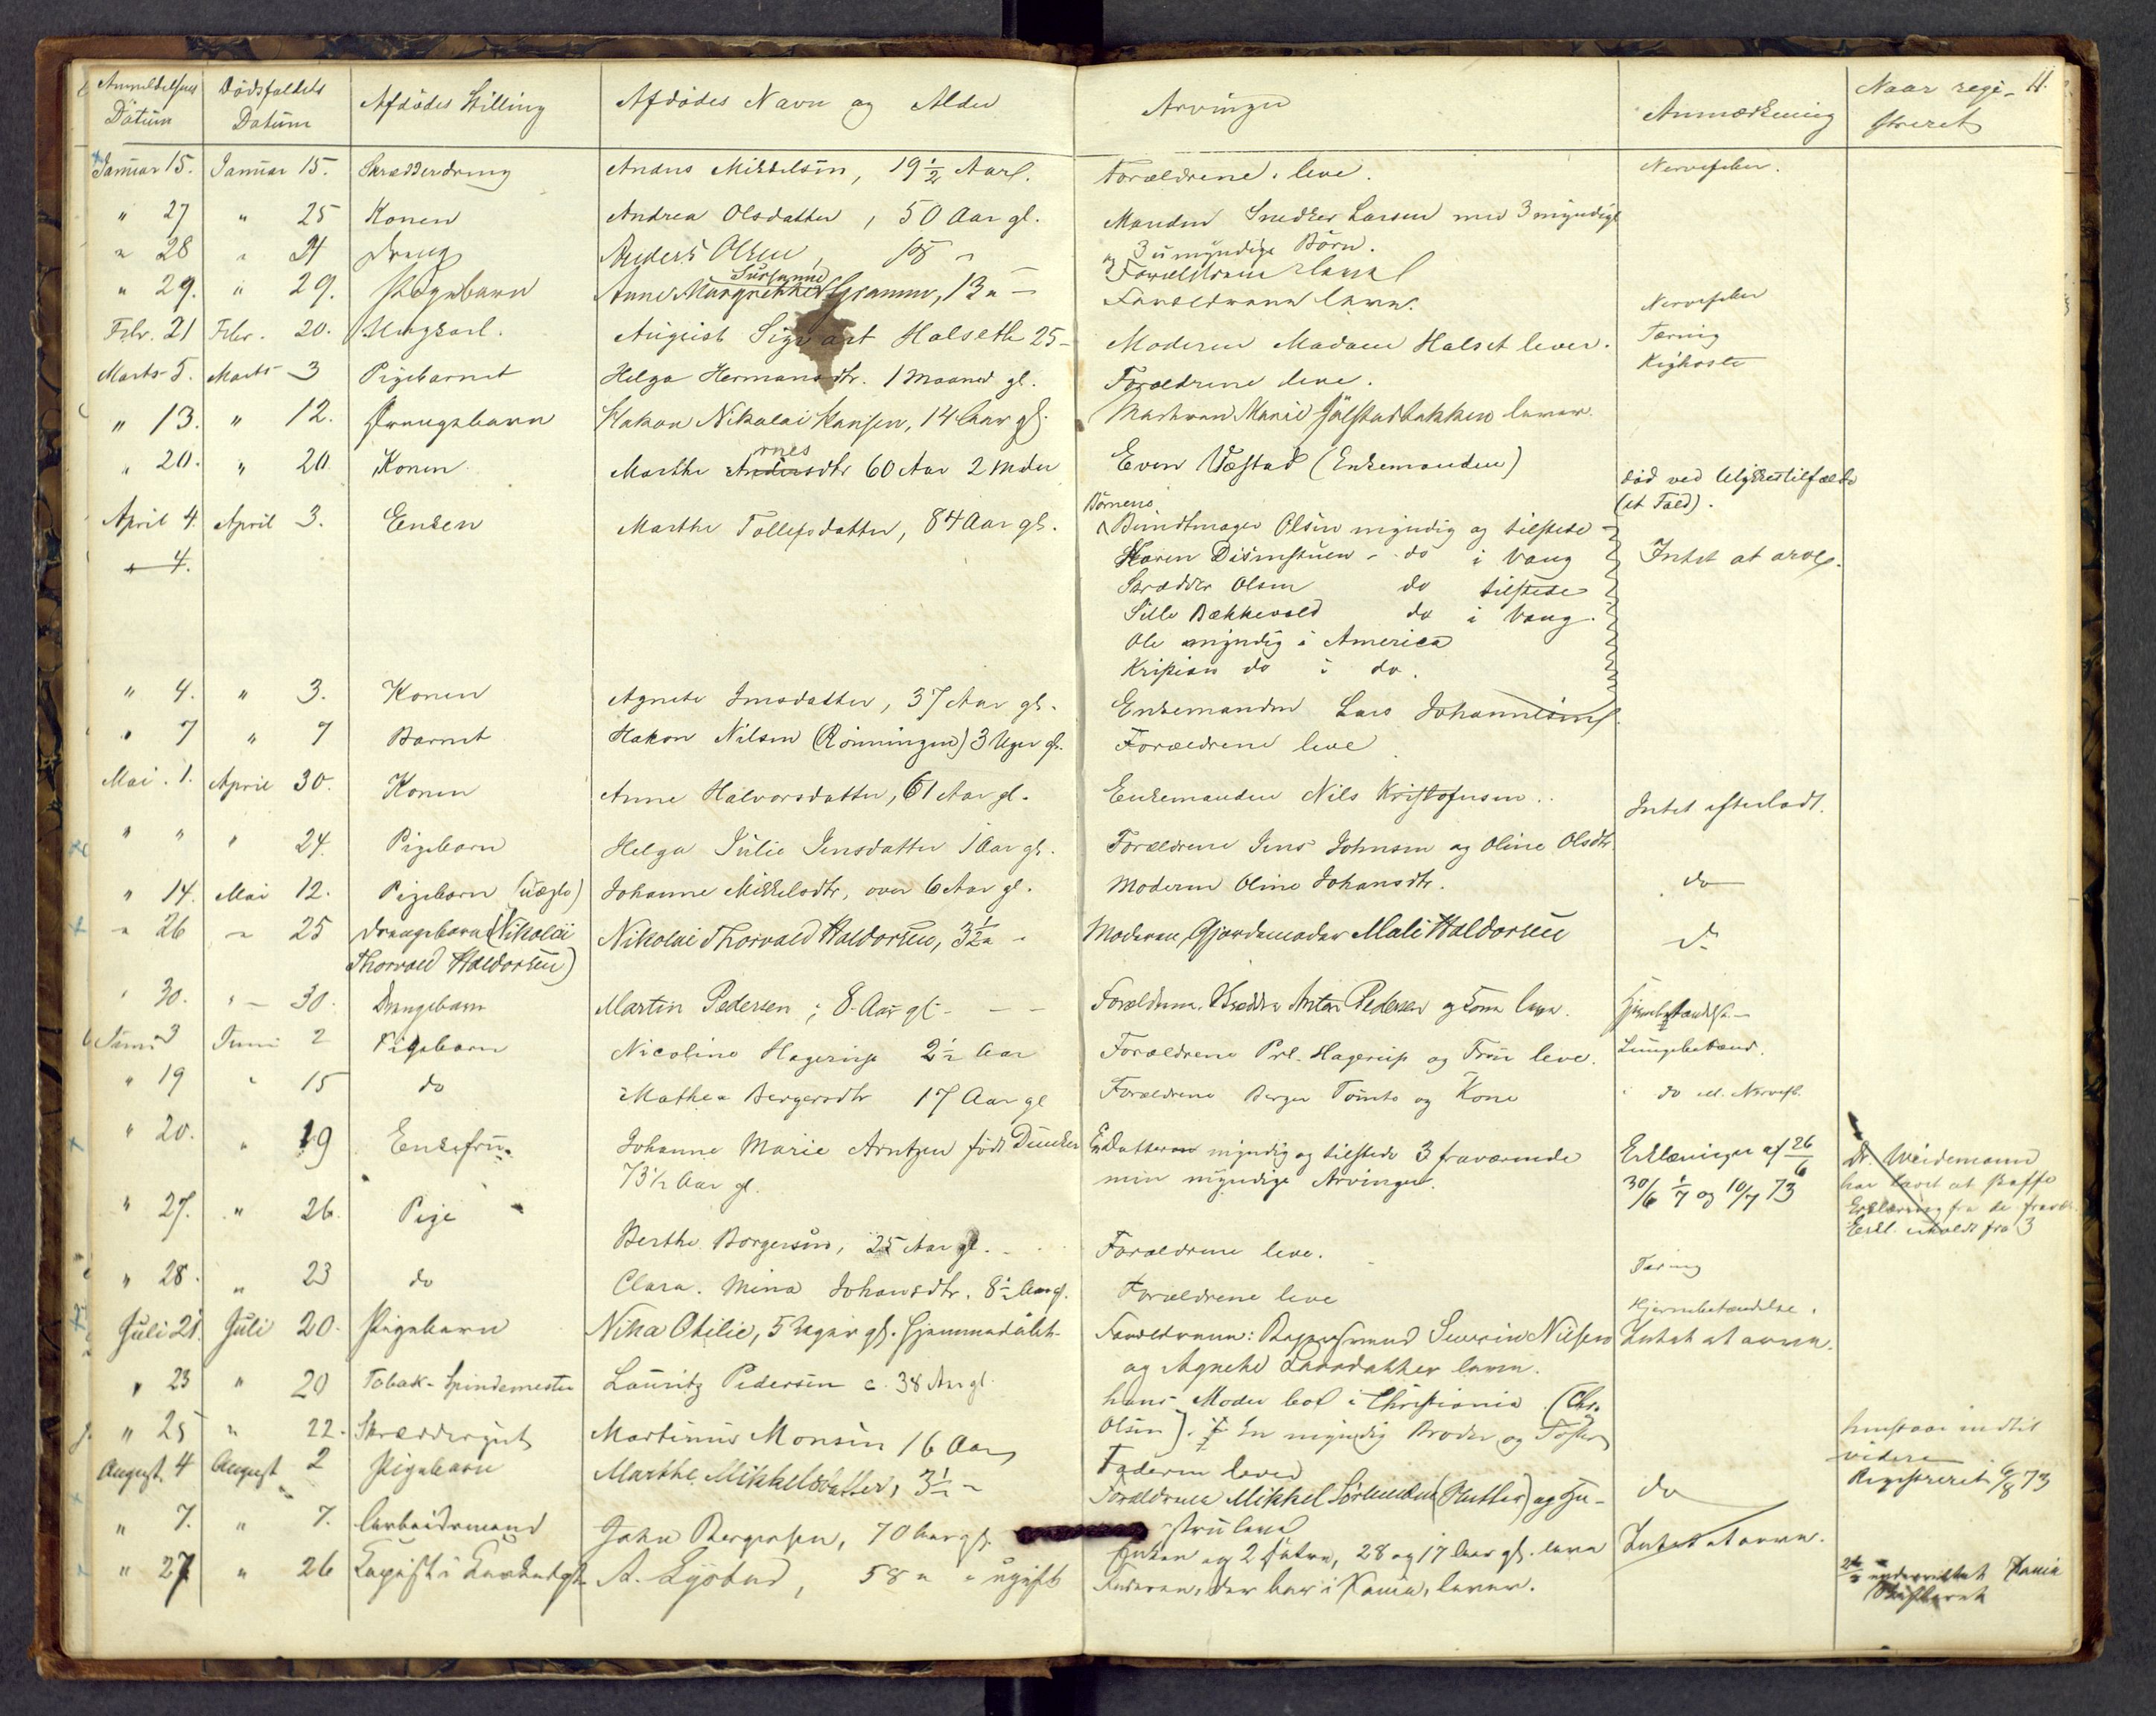 Anmeldelsens Datum Dödsfaldets Datum Afdödes Stilling Afdödes Navn og Alder Arvinger Anmærkning Naar regi- streret 11.
Januar 15. Januar 15. Skrædderdreng Anders Mikkelsen, 19 1/2 Aar. Forældrene leve. Nervefeber.
" 27 " 25 Konen Andrea Olsdatter, 50 Aar gl. Manden Snedker Larsen med 3 myndige
og 3 umyndige Börn.
" 28 " 21 Dreng Anders Olsen, 18 " Forældrene leve
" 29. " 29. Pigebarn Anne Margrethe Susanne Gramm, 13 " – Forældrene leve. Nervefeber
Febr. 21 Febr. 20. Ungkarl. August Sigvart Halseth 25 – Moderen Madam Halset lever. Tæring
Marts 5. Marts 3 Pigebarnet Helga Hermansdtr. 1 Maaned gl. Forældrene leve. Kighoste
" 13. " 12. Drengebarn Hakon Nikolai Hansen, 14 Aar gl. Marie lever.
" 20. " 20 Konen Marthe Andersdtr ornes 60 Aar 2 Mdr Even Væstad (Enkemanden) död ved Ulykkestilfælde
(et Fald).
April 4. April 3. Enken Marthe Tollefsdatter, 84 Aar gl. Börnene
Bundtmager Olsen myndig og tilstede
" 4. Karen do i Vang Intet at arve.
Skrædder Olsen do tilstede
Sille Bækkevold do i Vang.
Ole myndig i America
Kristian do i do.
" 4. " 3. Konen Agnete Jensdatter, 37 Aar gl. Enkemanden Lars Johannesen.
" 7 " 7 Barnet Hakon Nilsen (Rönningen) 3 Uger gl. Forældrene leve
Mai. 1. April 30. Konen Anne Halvorsdatter, 61 Aar gl. Enkemanden Nils Kristofersen. Intet efterladt.
" " " 24. Pigebarn Helga Julie Jensdatter 1 Aar gl. Forældrene Jens Johnsen og Oline Olsdtr.
" 14. Mai 12. Pigebarn (uægte) Johanne Mikkelsdtr, over 6 Aar gl. Moderen Oline Johansdtr. do
" 26 " 25 Drengebarn (Nikolai Nikolai Thorvald Haldorsen, 3 1/2 " – Moderen, Gjordemoder Mali Haldorsen do
Thorvald Haldorsen)
" 30. " – 30. Drengebarn Martin Pedersen, 8 Aar gl. – – Forældrene, Skrædder Anton Pedersen og Kone leve. Hjernebetændelse –
Juni 3 Juni 2 Pigebarn Nicoline Hagerup 2 1/2 Aar Forældrene Prl. Hagerup og Fru leve. Lungebetænd.
" 19 " 15 do Mathea Bergersdtr 17 Aar gl Forældrene Berger Tomte og Kone do el. Nervefb.
" 20. " 19 Enkefru. Johanne Marie Arntzen född Duncker En Datter myndig og tilstede 3 fraværende Erklæringer af 26/6 Dr. Weidemann
73 1/2 Aar gl. men myndige Arvinger. 30/6 1/7 og 10/7 73 har lovet at skaffe
Erklæring fra de fravær.
Erkl. indholdt fra 3
" 27. " 26. Pige Berthe Borgersen, 25 Aar gl. Forældrene leve. Tæring
" 28. " 23 do Clara Mina Johansdtr. 8 1/2 Aar gl. Forældrene leve Hjernebetændelse.
Juli 21. Juli 20. Pigebarn Nika Otilie, 5 Uger gl. hjemmedöbt. Forældrene: Severin Nilsen Intet at arve.
og Agnethe Larsdatter leve.
" 23 " 20 Tobak-Spindemester Lauritz Pedersen c. 38 Aar gl. hans Moder boet i Christiania (Chr.
Olsen). En myndig Broder og Söster
" 25 " 22. Skræddergut Martinus Monsen 16 Aar Faderen lever henstaar indtil
videre
August. 4 August 2 Pigebarn Marthe Mikkelsdatter, 3 1/2 " Forældrene Mikkel (Hutler) og Hu- do Registreret 6/8 73
stru leve
" 7. " 7. Arbeidsmand John Bergersen, 70 Aar gl. Enken og 2 Sönner, 28 og 17 Aar gl. leve Intet at arve.
" 27 " 26 A. Lysted, 58 " " ugift Faderen, der bor i Xania, lever. Xania